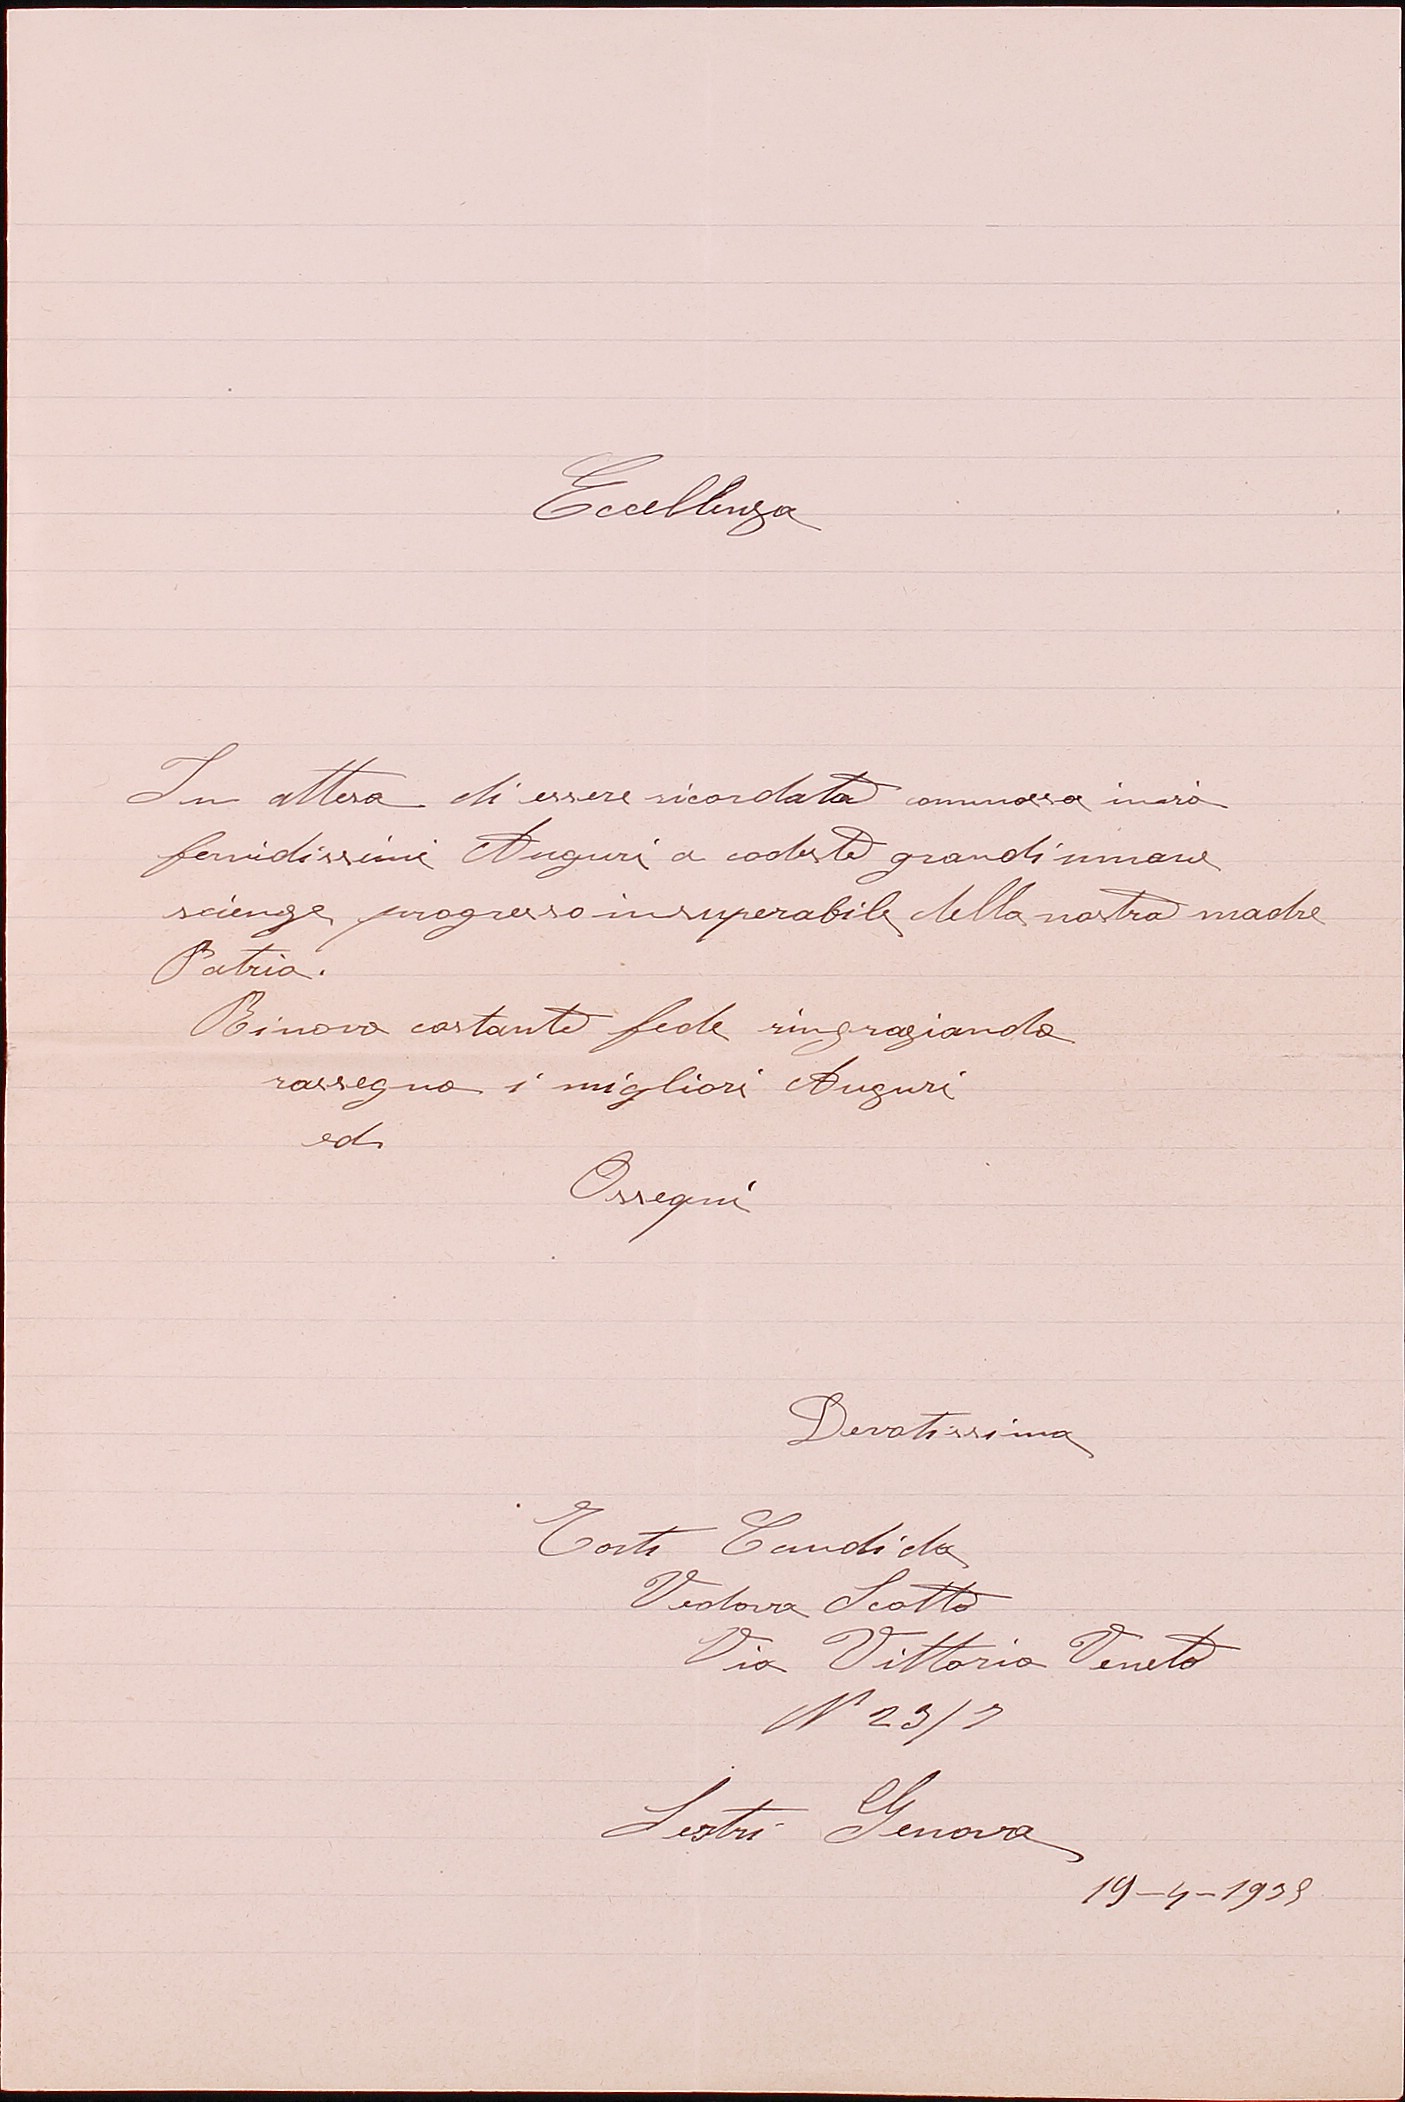 Eccellenza
In attesa di essere ricordata commossa invio
fervidissimi Auguri a codeste grandi umane
scienze, progresso insuperabile, della nostra madre
Patria.
Rinova costante fede ringraziando
rassegno i migliori Auguri
ed
Ossequi
Devotissima
Costi Candida
Vedova Scotto
Via Vittorio Veneto
N° 23/7
Sestri Genova
19-4-1938